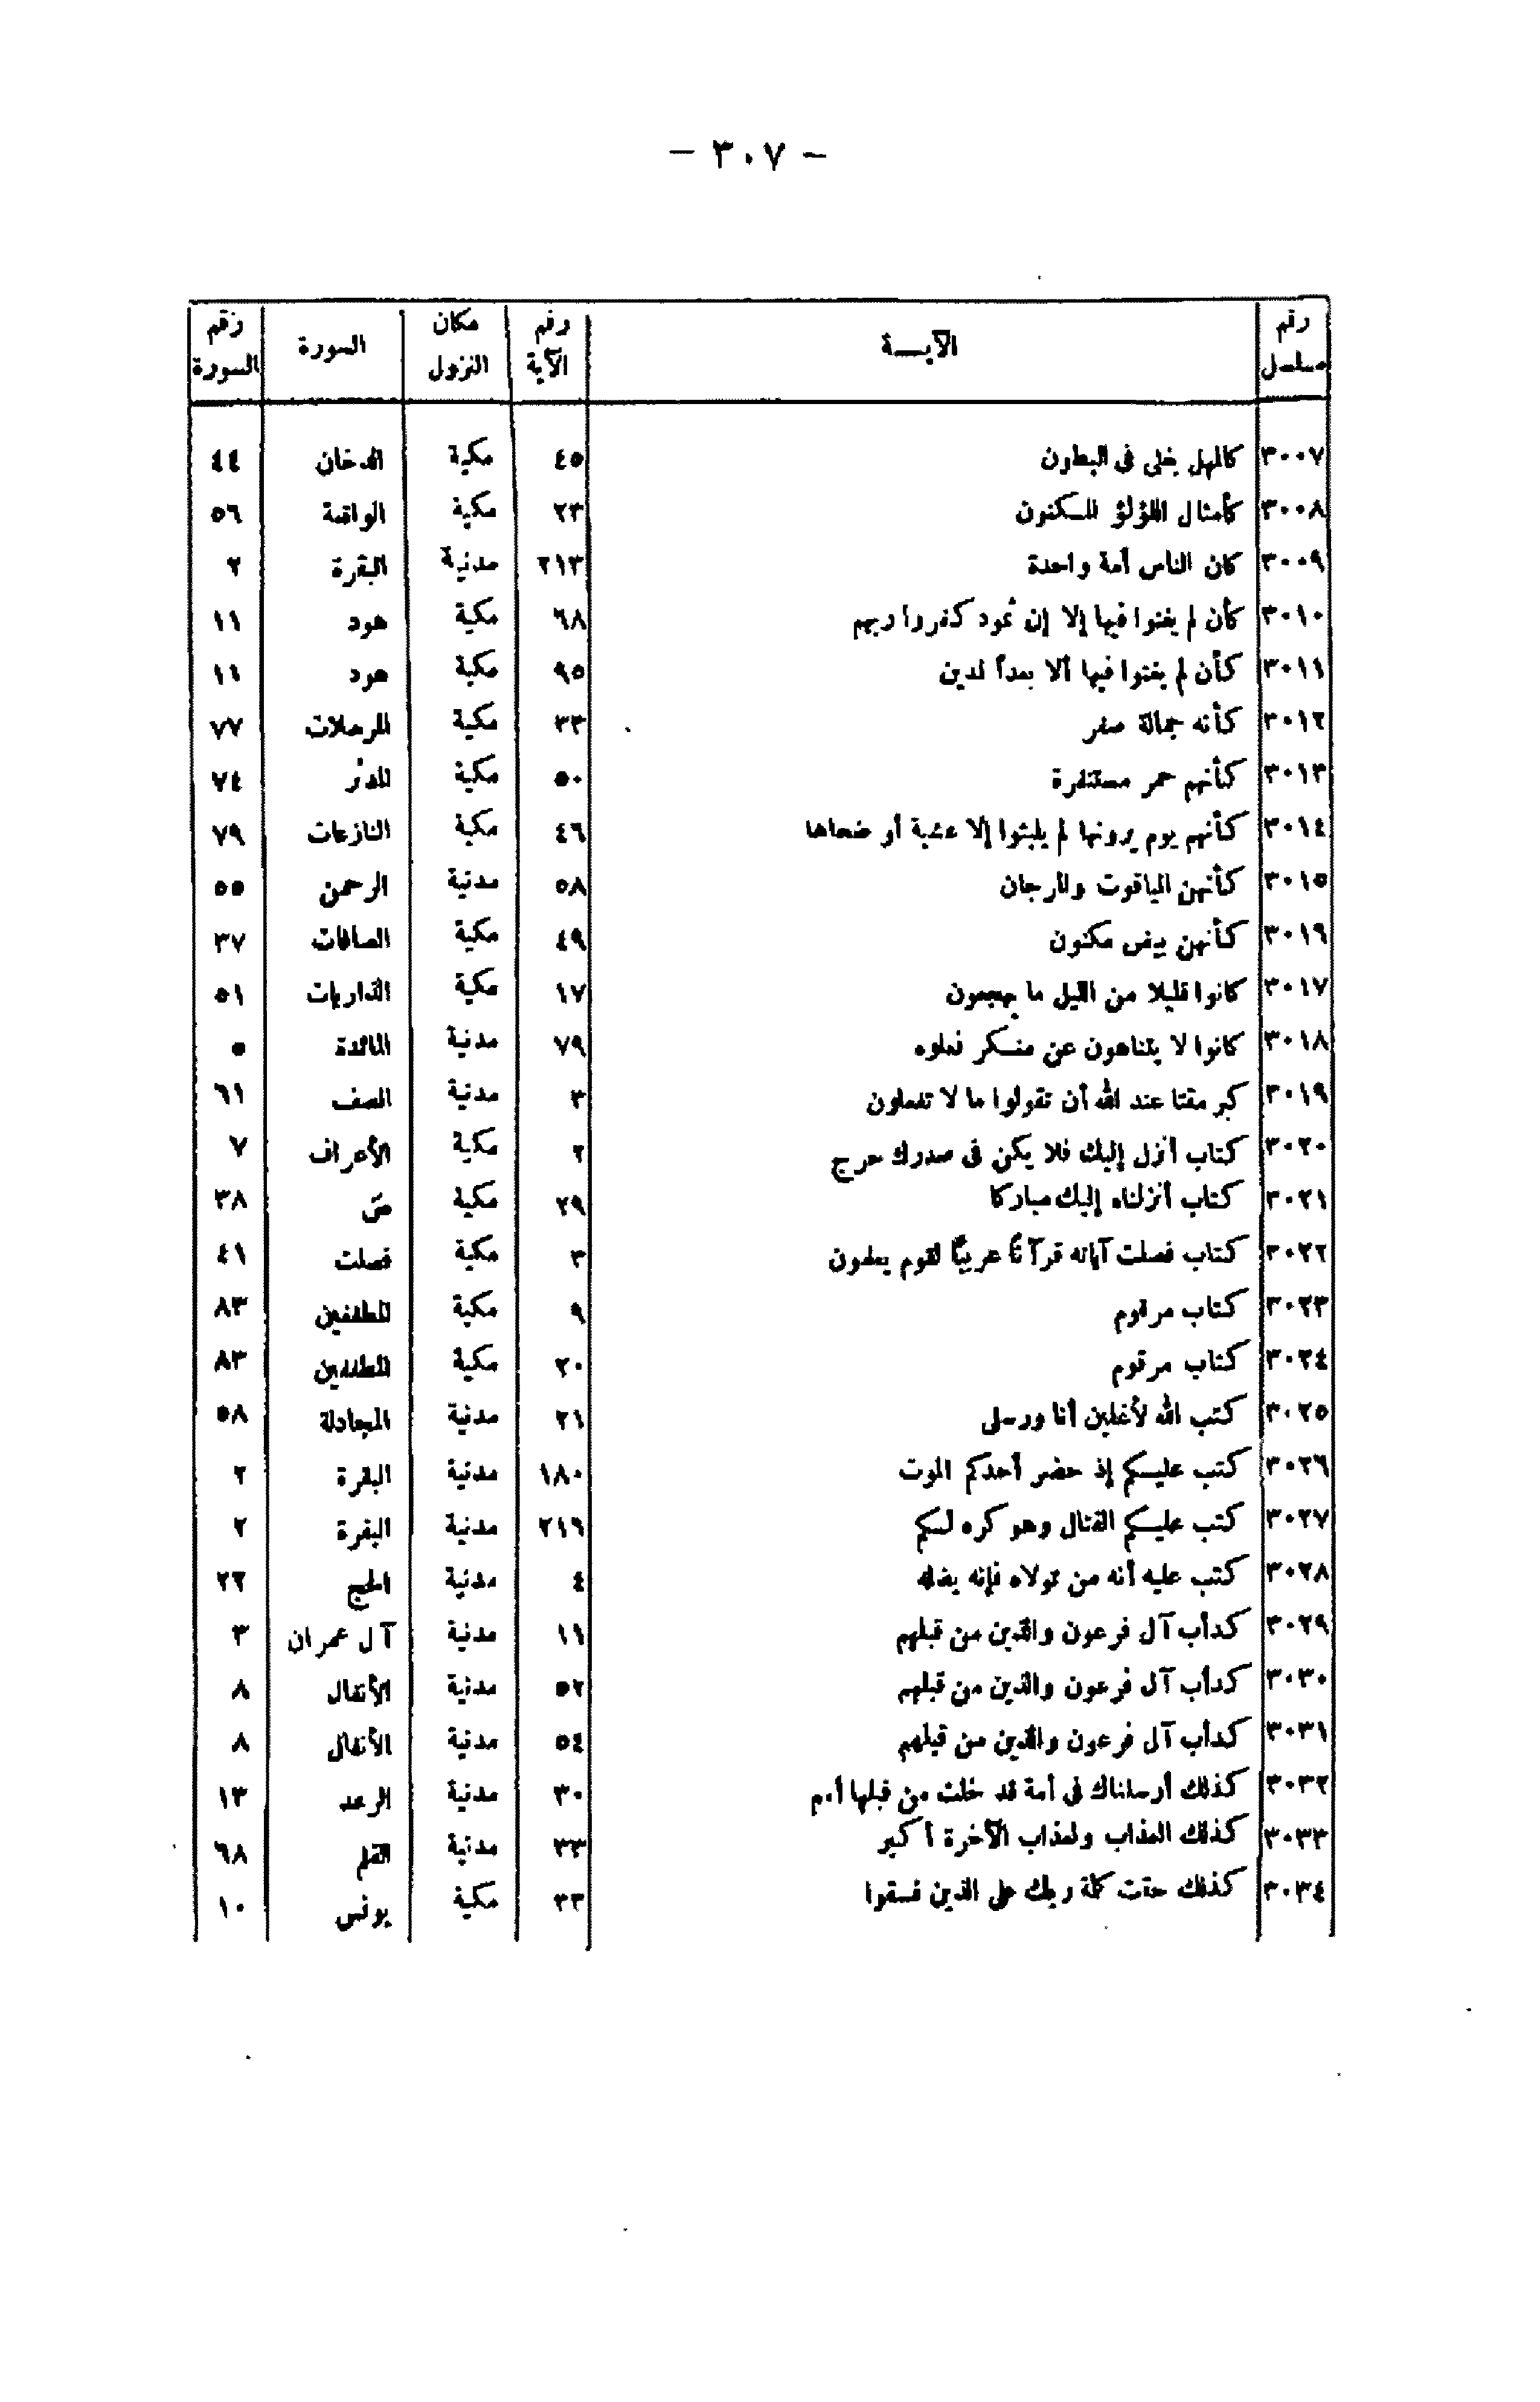 — ٣٠٧ —
رقم مسلسل | الآيــة | رقم الآية | مكان النزول | السورة | رقم السورة
٣٠٠٧ | كالمهل يغلى فى البطون | ٤٥ | مكية | الدخان | ٤٤
٣٠٠٨ | كأمثال اللؤلؤ المكنون | ٢٣ | مكية | الواقعة | ٥٦
٣٠٠٩ | كان الناس أمة واحدة | ٢١٣ | مدنية | البقرة | ٢
٣٠١٠ | كأن لم يغنوا فيها إلا إن ثمود كفروا ربهم | ٦٨ | مكية | هود | ١١
٣٠١١ | كأن لم يغنوا فيها ألا بعداً لمدين | ٩٥ | مكية | هود | ١١
٣٠١٢ | كأنه جمالة صفر | ٣٣ | مكية | المرسلات | ٧٧
٣٠١٣ | كأنهم حمر مستنفرة | ٥٠ | مكية | المدثر | ٧٤
٣٠١٤ | كأنهم يوم يرونها لم يلبثوا إلا عشية أو ضحاها | ٤٦ | مكية | النازعات | ٧٩
٣٠١٥ | كأنهن الياقوت والمرجان | ٥٨ | مدنية | الرحمن | ٥٥
٣٠١٦ | كأنهن بيض مكنون | ٤٩ | مكية | الصافات | ٣٧
٣٠١٧ | كانوا قليلا من الليل ما يهجعون | ١٧ | مكية | الذاريات | ٥١
٣٠١٨ | كانوا لا يتناهون عن منكر فعلوه | ٧٩ | مدنية | المائدة | ٥
٣٠١٩ | كبر مقتا عند الله أن تقولوا ما لا تفعلون | ٣ | مدنية | الصف | ٦١
٣٠٢٠ | كتاب أنزل إليك فلا يكن فى صدرك حرج | ٢ | مكية | الأعراف | ٧
٣٠٢١ | كتاب أنزلناه إليك مباركا | ٢٩ | مكية | صَ | ٣٨
٣٠٢٢ | كتاب فصلت آياته قرآناً عربيًا لقوم يعلمون | ٣ | مكية | فصلت | ٤١
٣٠٢٣ | كتاب مرقوم | ٩ | مكية | المطففين | ٨٣
٣٠٢٤ | كتاب مرقوم | ٢٠ | مكية | المطففين | ٨٣
٣٠٢٥ | كتب الله لأغلبن أنا ورسلى | ٢١ | مدنية | المجادلة | ٥٨
٣٠٢٦ | كتب عليكم إذ حضر أحدكم الموت | ١٨٠ | مدنية | البقرة | ٢
٣٠٢٧ | كتب عليكم القتال وهو كره لكم | ٢١٦ | مدنية | البقرة | ٢
٣٠٢٨ | كتب عليه أنه من تولاه فإنه يضله | ٤ | مدنية | الحج | ٢٢
٣٠٢٩ | كدأب آل فرعون والذين من قبلهم | ١١ | مدنية | آل عمران | ٣
٣٠٣٠ | كدأب آل فرعون والذين من قبلهم | ٥٢ | مدنية | الأنفال | ٨
٣٠٣١ | كدأب آل فرعون والذين من قبلهم | ٥٤ | مدنية | الأنفال | ٨
٣٠٣٢ | كذلك أرسلناك فى أمة قد خلت من قبلها أمم | ٣٠ | مدنية | الرعد | ١٣
٣٠٣٣ | كذلك العذاب ولعذاب الآخرة أكبر | ٣٣ | مدنية | القلم | ٦٨
٣٠٣٤ | كذلك حقت كلمة ربك على الذين فسقوا | ٣٣ | مكية | يونس | ١٠